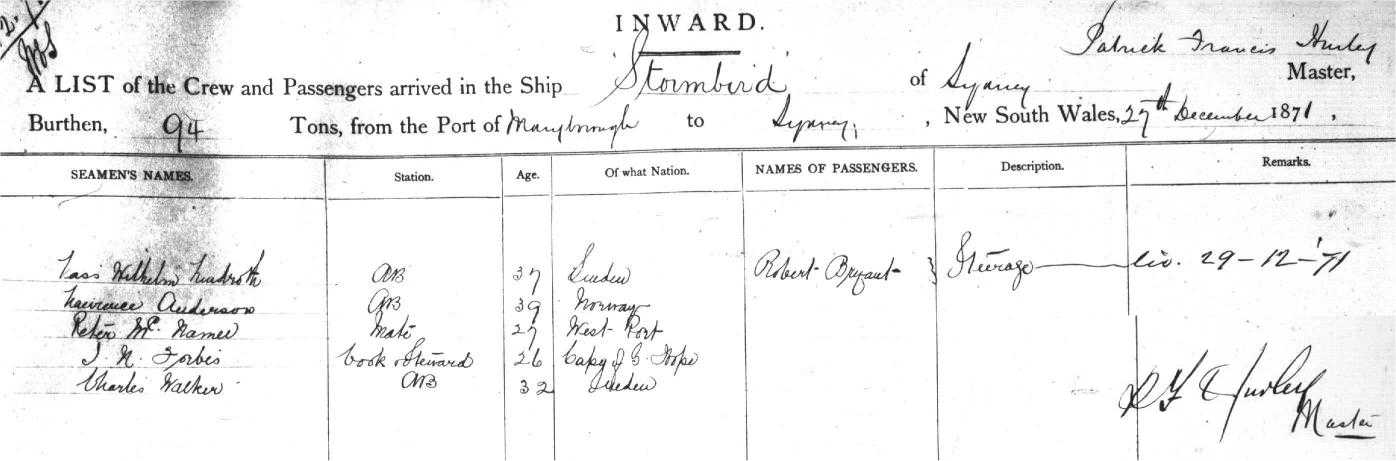 INWARD.
Patrick Francis Hurley
A LIST of the Crew and Passengers arrived in the Ship Stormbird of Sydney Master,
Burthen, 94 Tons, from the Port of Maryborough to Sydney, , New South Wales, 27th December 1871,
SEAMEN'S NAMES. Station. Age. Of what Nation. NAMES OF PASSENGERS. Description. Remarks.
Wilhelm AB 37 Sweden Robert Bryant } Steerage liv. 29-12-'71
Lawrence Anderson AB 39 Norway
Peter Mc Namee Mate 27 West Port
J. N. Forbes Cook & Steward 26 Cape of G. Hope
Charles Walker AB 32 Sweden
P F Hurley
Master